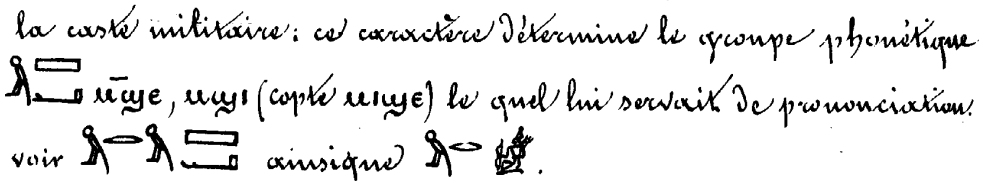 la caste militaire: ce caractère détermine le groupe phonétique
ⲙ̄ϣⲉ, ⲙϣⲓ (copte ⲙⲓϣⲉ) le quel lui servait de prononciation.
voir ainsique .